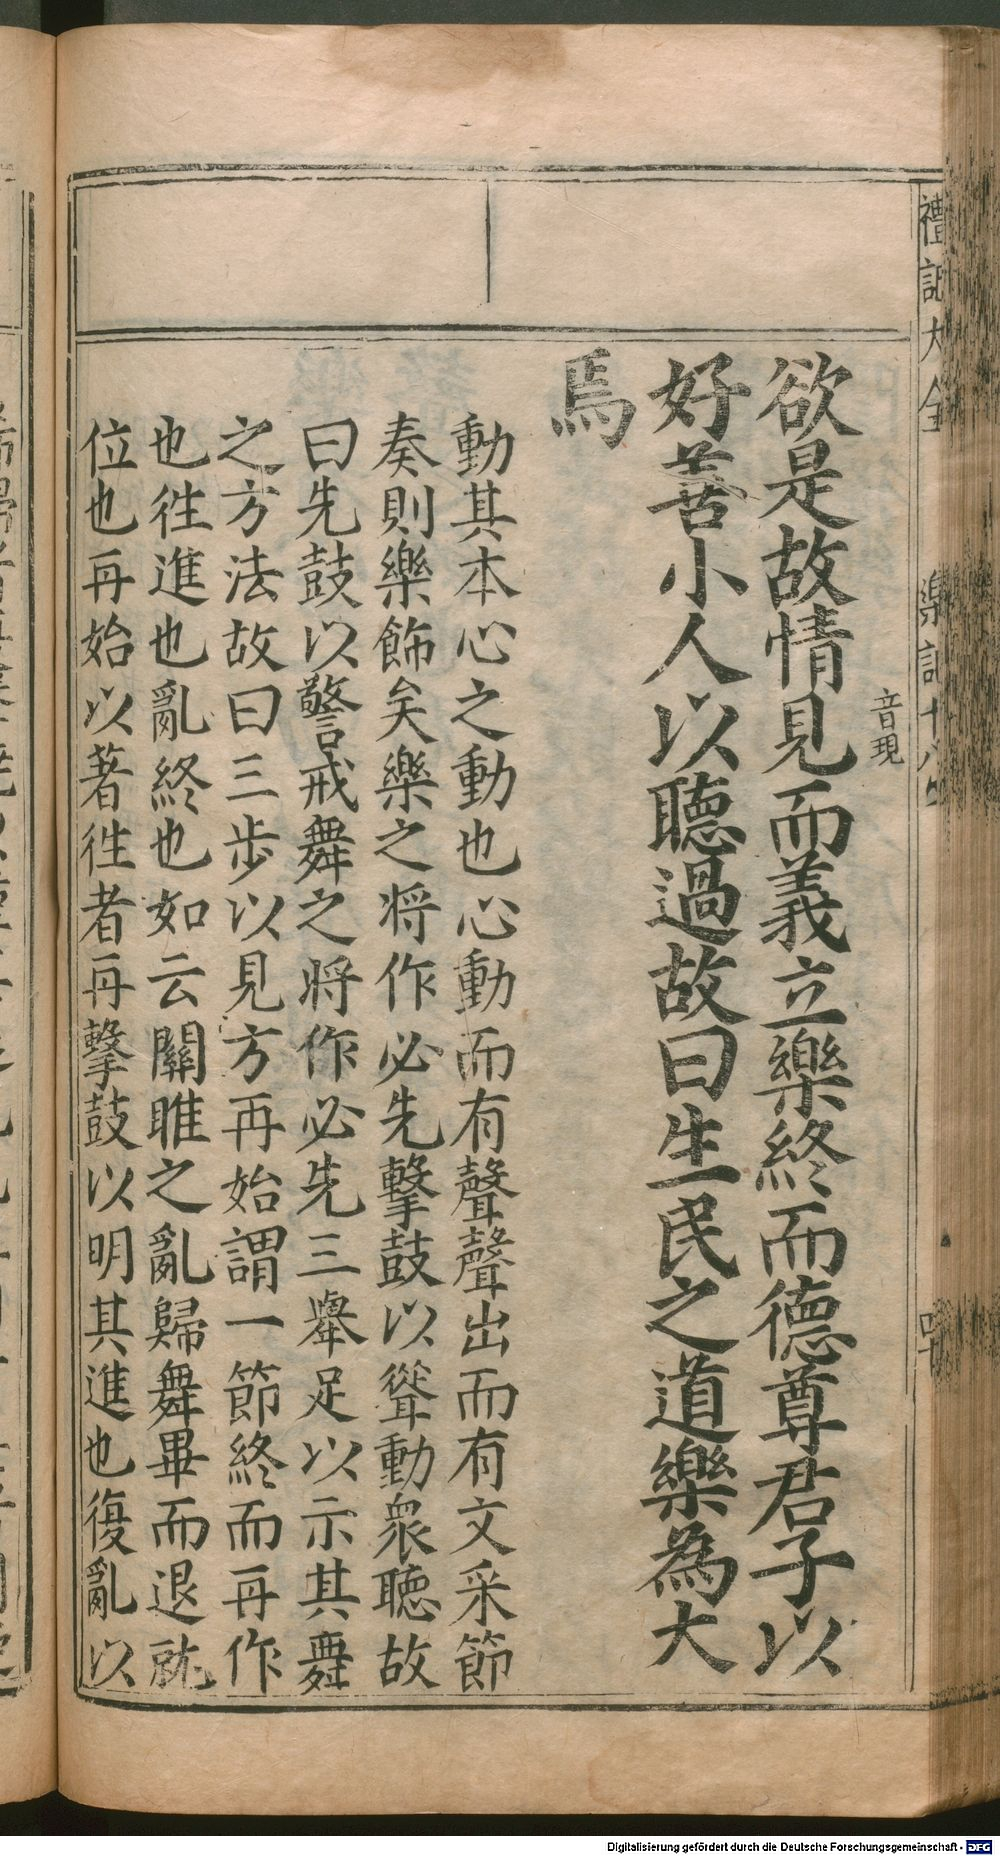 禮記大全 樂記十八
欲是故情見而義立樂終而德尊君子以
音現
好善小人以聽過故曰生民之道樂為大
焉
動其本心之動也心動而有聲聲出而有文采節
奏則樂飾矣樂之将作必先擊鼓以聳動衆聽故
曰先鼓以警戒舞之将作必先三舉足以示其舞
之方法故曰三步以見方再始謂一節終而再作
也徃進也亂終也如云關雎之亂歸舞畢而退就
位也再始以著徃者再擊鼓以明其進也復亂以
Digitalisierung gefördert durch die Deutsche Forschungsgemeinschaft - DFG